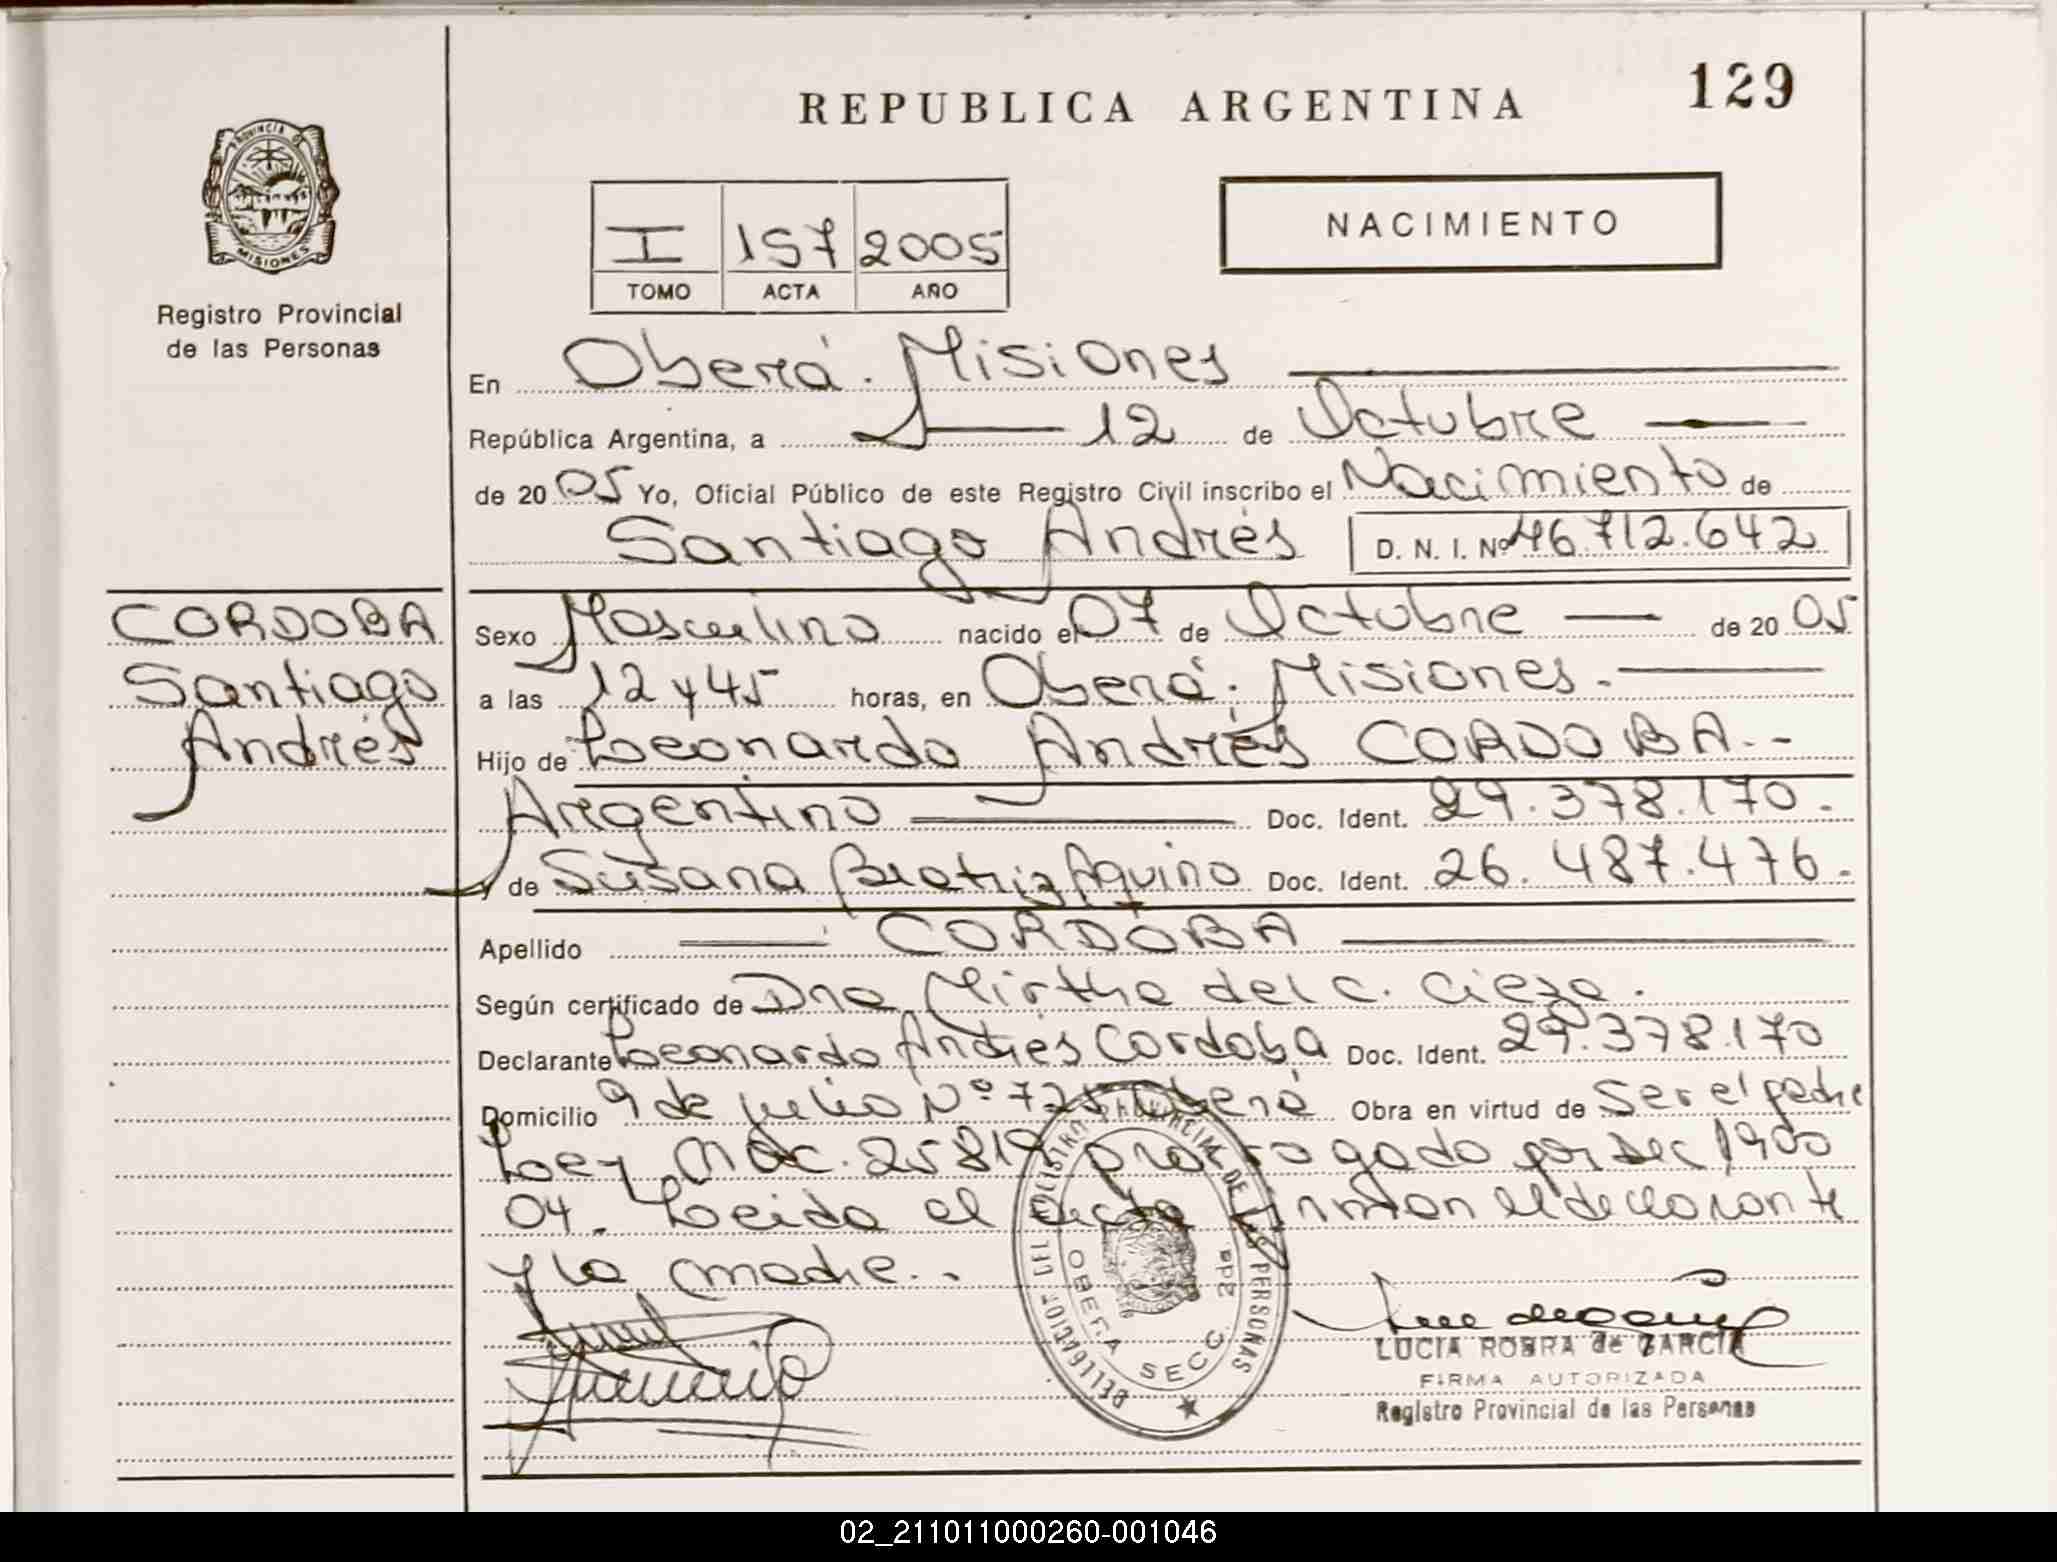 REPUBLICA ARGENTINA
129
PROVINCIA DE
MISIONES
Registro Provincial
de las Personas
I 157 2005
TOMO ACTA AÑO
NACIMIENTO
En Oberá. Misiones
República Argentina, a 12 de Octubre
de 20 05 Yo, Oficial Público de este Registro Civil inscribo el Nacimiento de
Santiago Andrés D. N. I. Nº 46.712.642
CORDOBA
Santiago
Andrés
Sexo Masculino nacido el 07 de Octubre de 20 05
a las 12 y 45 horas, en Oberá. Misiones.
Hijo de Leonardo Andrés CORDOBA.-
Argentino Doc. Ident. 29.378.170.
y de Susana Beatriz Aquino Doc. Ident. 26.487.476.
Apellido CORDOBA
Según certificado de Dra Mirtha del C. Cieza.
Declarante Leonardo Andrés Cordoba Doc. Ident. 29.378.170
Domicilio 9 de julio Nº 725 Oberá Obra en virtud de Ser el padre
Ley Nac. 25819 prorrogado por Dec 1900
04. Leida el acta firman el declarante
y la madre.-
DELEGACION DEL REGISTRO PROVINCIAL DE LAS PERSONAS
OBERA SECC. 2da.
LUCIA ROBRA de GARCIA
FIRMA AUTORIZADA
Registro Provincial de las Personas
02_211011000260-001046